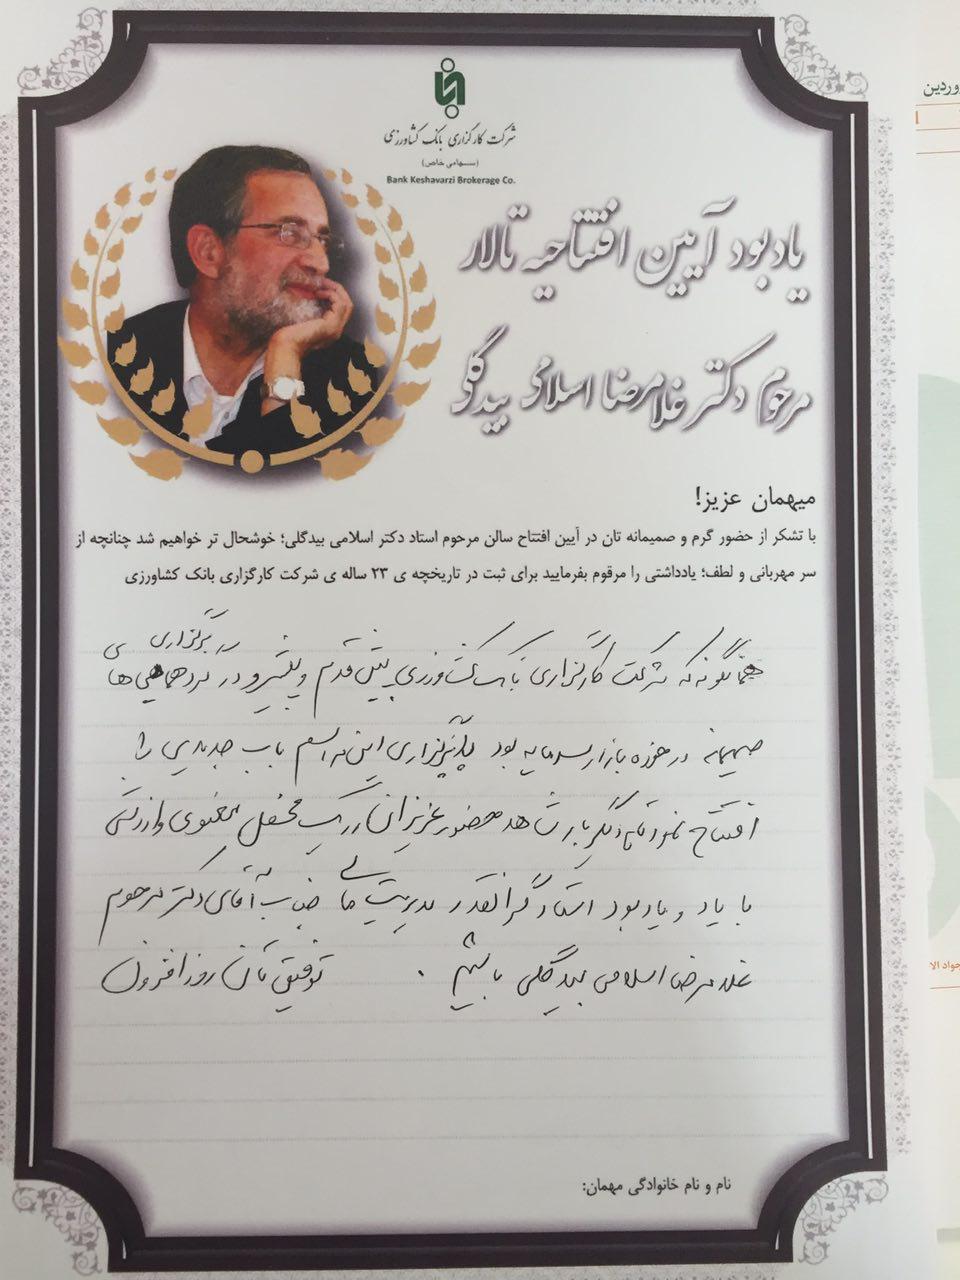 شرکت کارگزاری بانک کشاورزی
(سهامی خاص)
Bank Keshavarzi Brokerage Co.
یادبود آیین افتتاحیه تالار
مرحوم دکتر غلامرضا اسلامی بیدگلی
میهمان عزیز!
با تشکر از حضور گرم و صمیمانه تان در آیین افتتاح سالن مرحوم استاد دکتر اسلامی بیدگلی؛ خوشحال تر خواهیم شد چنانچه از
سر مهربانی و لطف؛ یادداشتی را مرقوم بفرمایید برای ثبت در تاریخچه ی ۲۳ ساله ی شرکت کارگزاری بانک کشاورزی
همانگونه که شرکت کارگزاری بانک کشاورزی پیش قدم و پیشرو در برگزاری گردهمایی های
صمیمانه در حوزه بازار سرمایه بود با برگزاری این مراسم باب جدیدی را
افتتاح نمود تا دیگر بار شاهد حضور عزیزان در یک محفل معنوی و ارزشی
با یاد و یادبود استاد گرانقدر مدیریت مالی جناب آقای دکتر مرحوم
غلامرضا اسلامی بیدگلی باشیم. توفیق تان روزافزون
نام و نام خانوادگی مهمان:
وردین
جواد الا